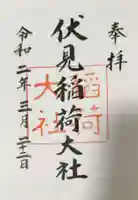 奉拝
伏見稲荷大社
令和二年三月二十二日
稲荷
大社